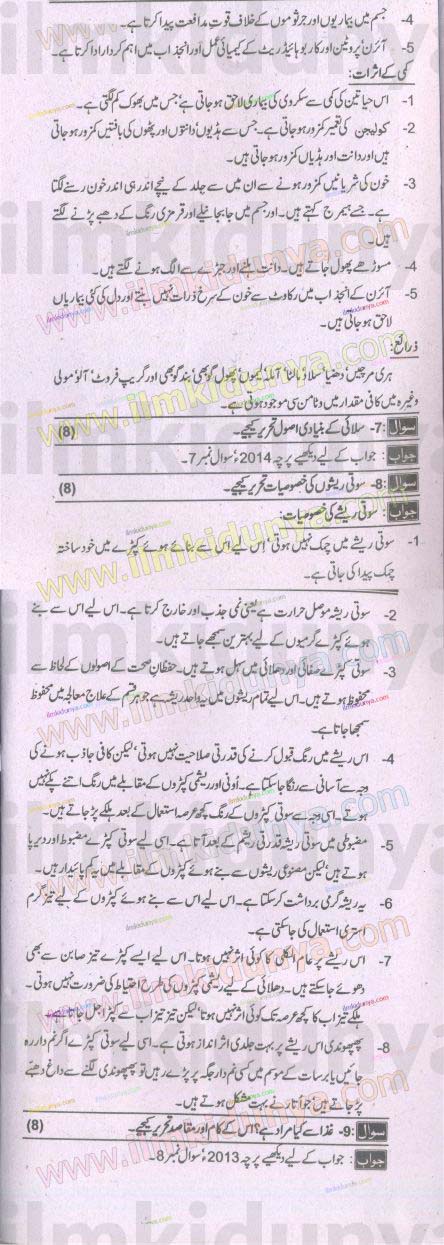 4- جسم میں بیماریوں اور جرثوموں کے خلاف قوتِ مدافعت پیدا کرتا ہے۔
5- آئرن، پروٹین اور کاربوہائیڈریٹ کے کیمیائی عمل اور انجذاب میں اہم کردار ادا کرتا ہے۔
کمی کے اثرات:
1- اس حیاتین کی کمی سے سکروی کی بیماری لاحق ہو جاتی ہے، جس میں بھوک کم لگتی ہے۔
2- کولیجن کی تعمیر کمزور ہو جاتی ہے۔ جس سے ہڈیوں، دانتوں اور پٹھوں کی بافتیں کمزور ہو جاتی
ہیں اور دانت اور ہڈیاں کمزور ہو جاتی ہیں۔
3- خون کی شریانیں کمزور ہونے سے ان میں سے جلد کے نیچے اندر ہی اندر خون رسنے لگتا
ہے۔ جسے ہیمرج کہتے ہیں۔ اور جسم میں جا بجا نیلے اور قرمزی رنگ کے دھبے پڑنے لگتے
ہیں۔
4- مسوڑھے پھول جاتے ہیں۔ دانت ہلنے اور جبڑے سے الگ ہونے لگتے ہیں۔
5- آئرن کے انجذاب میں رکاوٹ سے خون کے سرخ ذرات نہیں بنتے اور دل کی کئی بیماریاں
لاحق ہو جاتی ہیں۔
ذرائع:
ہری مرچیں، دھنیا، سلاد، مالٹا، آملہ، لیموں، پھول گوبھی، بند گوبھی اور گریپ فروٹ، آلو، مولی
وغیرہ میں کافی مقدار میں وٹامن سی موجود ہوتی ہے۔
سوال 7- سلائی کے بنیادی اصول تحریر کیجیے۔ (8)
جواب : جواب کے لیے دیکھیے پرچہ 2014ء، سوال نمبر 7۔
سوال 8- سوتی ریشوں کی خصوصیات تحریر کیجیے۔ (8)
جواب : سوتی ریشے کی خصوصیات:
1- سوتی ریشے میں چمک نہیں ہوتی، اس لیے اس سے بنائے ہوئے کپڑے میں خود ساختہ
چمک پیدا کی جاتی ہے۔
2- سوتی ریشہ موصل حرارت ہے یعنی نمی جذب اور خارج کرتا ہے۔ اس لیے اس سے بنے
ہوئے کپڑے گرمیوں کے لیے بہترین سمجھے جاتے ہیں۔
3- سوتی کپڑے صفائی اور دھلائی میں سہل ہوتے ہیں۔ حفظانِ صحت کے اصولوں کے لحاظ سے
محفوظ ہوتے ہیں۔ اس لیے تمام ریشوں میں یہ واحد ریشہ ہے جو ہر قسم کے علاج معالجہ میں محفوظ
سمجھا جاتا ہے۔
4- اس ریشے میں رنگ قبول کرنے کی قدرتی صلاحیت نہیں ہوتی، لیکن کافی جاذب ہونے کی
وجہ سے آسانی سے رنگا جا سکتا ہے۔ اُونی اور ریشمی کپڑوں کے مقابلے میں رنگ اتنے پکے نہیں
ہوتے۔ اسی وجہ سے سوتی کپڑوں کے رنگ کچھ عرصہ استعمال کے بعد ہلکے پڑ جاتے ہیں۔
5- مضبوطی میں سوتی ریشہ قدرتی ریشم کے بعد آتا ہے۔ اسی لیے سوتی کپڑے مضبوط اور دیرپا
ہوتے ہیں، لیکن مصنوعی ریشوں سے بنے ہوئے کپڑوں کے مقابلے میں یہ کم پائیدار ہیں۔
6- یہ ریشہ گرمی برداشت کر سکتا ہے۔ اس لیے اس سے بنے ہوئے کپڑوں کے لیے تیز گرم
استری استعمال کی جا سکتی ہے۔
7- اس ریشے پر عام الکلی کا کوئی اثر نہیں ہوتا۔ اس لیے ایسے کپڑے تیز صابن سے بھی
دھوئے جا سکتے ہیں۔ دھلائی کے لیے ریشمی کپڑوں کی طرح احتیاط کی ضرورت نہیں ہوتی۔
ہلکے تیزاب کا کچھ عرصہ تک کوئی اثر نہیں ہوتا، لیکن تیز تیزاب سے کپڑا جل جاتا ہے۔
8- پھپھوندی اس ریشے پر بہت جلدی اثر انداز ہوتی ہے۔ اسی لیے سوتی کپڑے اگر نم دار رہ
جائیں یا برسات کے موسم میں کسی نم دار جگہ پر پڑے رہیں تو پھپھوندی لگنے سے داغ دھبے
پڑ جاتے ہیں، جو اُتارنے بہت مشکل ہوتے ہیں۔
سوال 9- غذا سے کیا مراد ہے؟ اس کے کام اور مقاصد تحریر کیجیے۔ (8)
جواب : جواب کے لیے دیکھیے پرچہ 2013ء، سوال نمبر 8۔